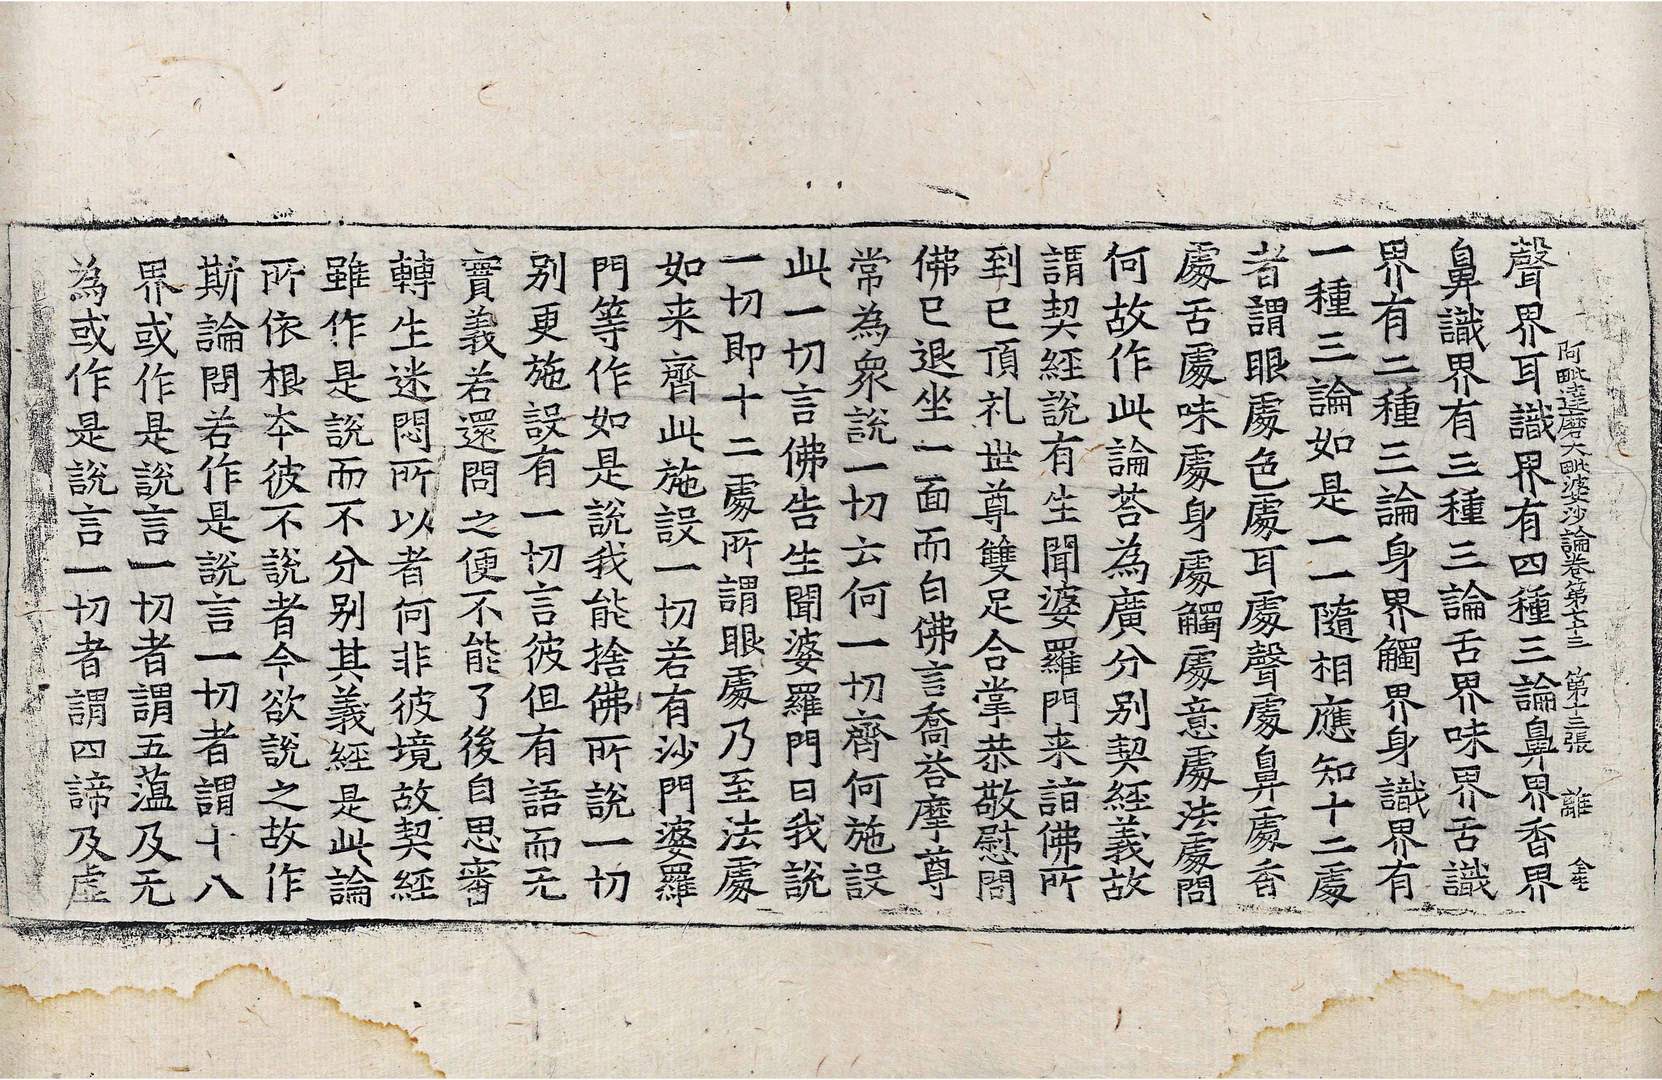 阿毗達磨大毗婆沙論卷第七十三 第十三張 離 全
聲界耳識界有四種三論鼻界香界
鼻識界有三種三論舌界味界舌識
界有二種三論身界觸界身識界有
一種三論如是一一隨相應知十二處
者謂眼處色處耳處聲處鼻處香
處舌處味處身處觸處意處法處問
何故作此論荅為廣分別契經義故
謂契經說有生聞婆羅門来詣佛所
到已頂礼世尊雙足合掌恭敬慰問
佛已退坐一面而白佛言喬荅摩尊
常為衆說一切云何一切齊何施設
此一切言佛告生聞婆羅門曰我說
一切即十二處所謂眼處乃至法處
如来齊此施設一切若有沙門婆羅
門等作如是說我能捨佛所說一切
別更施設有一切言彼但有語而无
實義若還問之便不能了後自思審
轉生迷悶所以者何非彼境故契經
雖作是說而不分別其義經是此論
所依根本彼不說者今欲說之故作
斯論問若作是說言一切者謂十八
界或作是說言一切者謂五蘊及无
為或作是說言一切者謂四諦及虛